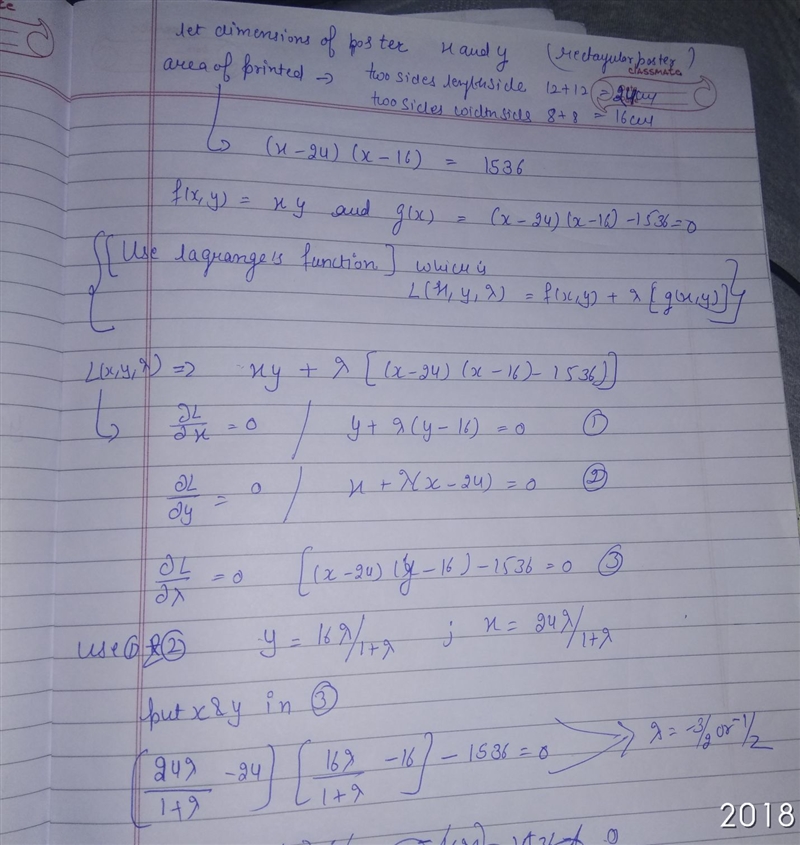 let dimensions of poster x and y (rectangular poster)
CLASSMATE
area of printed → two sides lengthside 12+12 = 24cm
two sides widthside 8+8 = 16cm
(x-24) (x-16) = 1536
f(x,y) = xy and g(x) = (x-24)(x-16)-1536=0
{[Use lagrange's function] which is
L(x, y, λ) = f(x,y) + λ [g(x,y)]}
L(x,y,λ) ⇒ xy + λ [(x-24) (x-16)-1536)]
∂L/∂x = 0 / y + λ(y-16) = 0 ①
∂L/∂y = 0 / x + λ(x-24) = 0 ②
∂L/∂λ = 0 [(x-24) (y-16)-1536=0 ③
Use ① & ② y = 16λ/1+λ ; x = 24λ/1+λ
put x & y in ③
[24λ/1+λ -24] [16λ/1+λ -16] - 1536 = 0 → λ = -3/2 or -1/2
2018